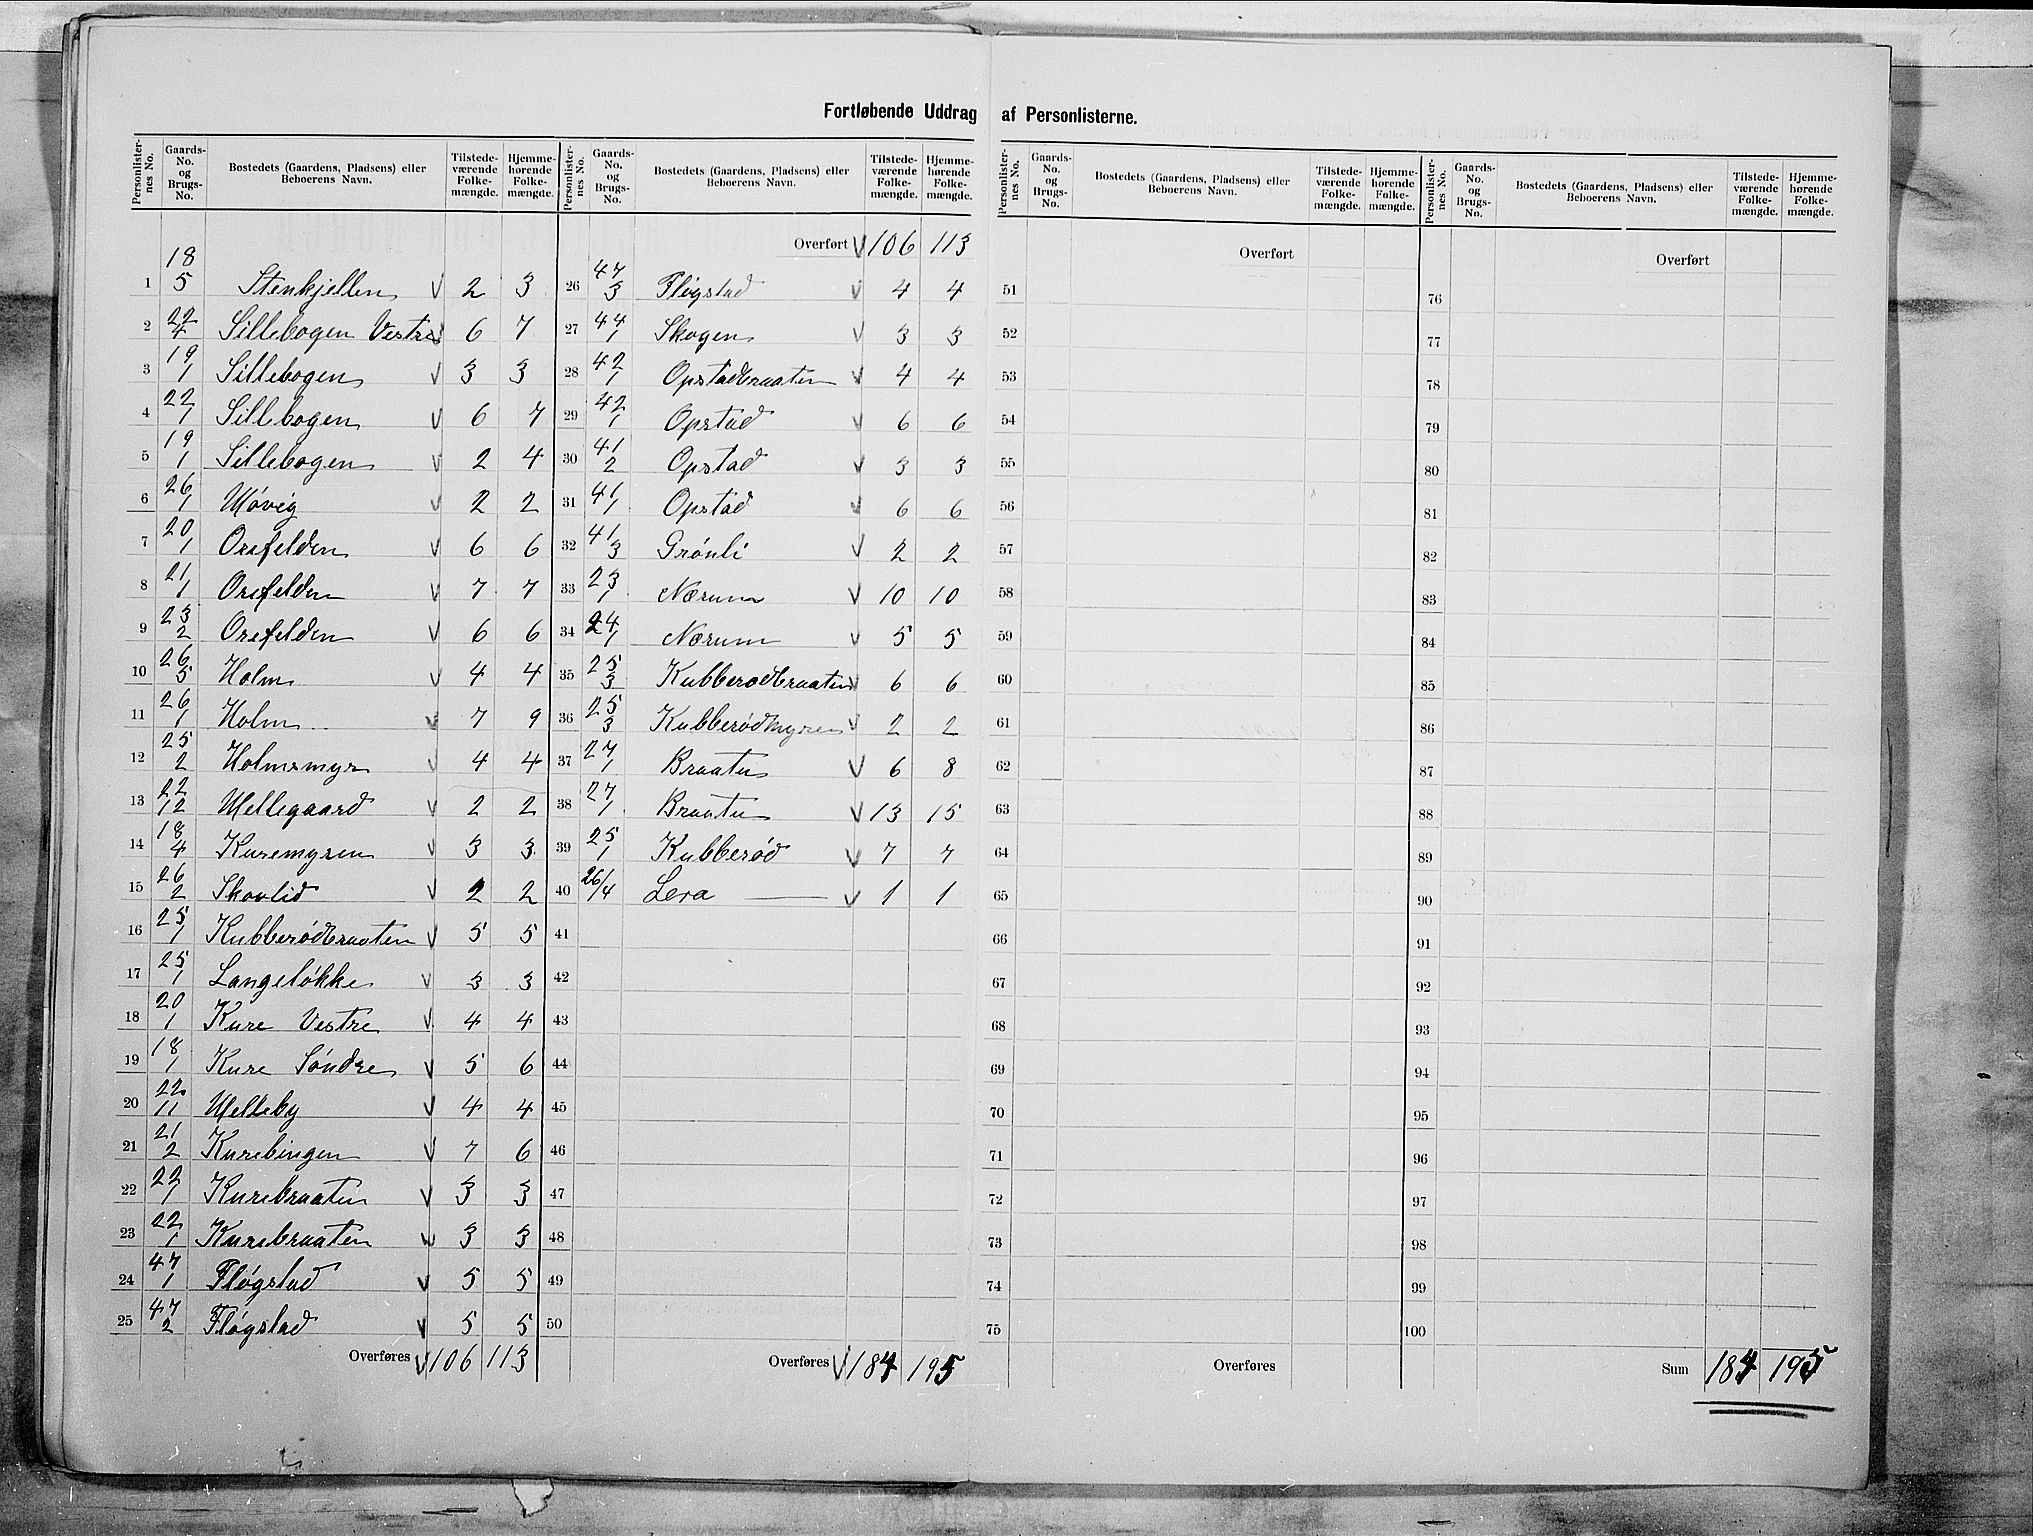 Fortløbende Uddrag af Personlisterne.
Personlisternes No. Gaards-No. og Brugs-No. Bostedets (Gaardens, Pladsens) eller Beboerens Navn. Tilstedeværende Folkemængde. Hjemmehørende Folkemængde.
Personlisternes No. Gaards-No. og Brugs-No. Bostedets (Gaardens, Pladsens) eller Beboerens Navn. Tilstedeværende Folkemængde. Hjemmehørende Folkemængde.
Personlisternes No. Gaards-No. og Brugs-No. Bostedets (Gaardens, Pladsens) eller Beboerens Navn. Tilstedeværende Folkemængde. Hjemmehørende Folkemængde.
Personlisternes No. Gaards-No. og Brugs-No. Bostedets (Gaardens, Pladsens) eller Beboerens Navn. Tilstedeværende Folkemængde. Hjemmehørende Folkemængde.
1 18/5 Stenkjellen √ 2 3
2 22/4 Sillebogen Vestre √ 6 7
3 19/1 Sillebogen √ 3 3
4 22/1 Sillebogen √ 6 7
5 19/1 Sillebogen √ 2 4
6 26/1 Møvig √ 2 2
7 20/1 Orefelden √ 6 6
8 21/1 Orefelden √ 7 7
9 23/2 Orefelden √ 6 6
10 26/5 Holm √ 4 4
11 26/1 Holm √ 7 9
12 25/2 Holmsmyr √ 4 4
13 22/12 Mellegaard √ 2 2
14 18/4 Kuremyren √ 3 3
15 26/2 Skovlid √ 2 2
16 25/1 Kubberødbraaten √ 5 5
17 25/1 Langeløkke √ 3 3
18 20/1 Kure Vestre √ 4 4
19 18/1 Kure Søndre √ 5 6
20 22/11 Melleby √ 4 4
21 21/2 Kurebingen √ 7 6
22 22/1 Kurebraaten √ 3 3
23 22/1 Kurebraaten √ 3 3
24 47/1 Fløgstad √ 5 5
25 47/2 Fløgstad √ 5 5
Overføres √ 106 113
Overført √ 106 113
26 47/3 Fløgstad √ 4 4
27 44/1 Skogen √ 3 3
28 42/1 Opstadbraaten √ 4 4
29 42/1 Opstad √ 6 6
30 41/2 Opstad √ 3 3
31 41/1 Opstad √ 6 6
32 41/3 Grønli √ 2 2
33 23/1 Nærum √ 10 10
34 24/1 Nærum √ 5 5
35 25/3 Kubberødbraaten √ 6 6
36 25/3 Kubberødmyren √ 2 2
37 27/1 Braaten √ 6 8
38 27/1 Braaten √ 13 15
39 25/1 Kubberød √ 7 7
40 26/4 Lera √ 1 1
41
42
43
44
45
46
47
48
49
50
Overføres √ 184 195
Overført
51
52
53
54
55
56
57
58
59
60
61
62
63
64
65
66
67
68
69
70
71
72
73
74
75
Overføres
Overført
76
77
78
79
80
81
82
83
84
85
86
87
88
89
90
91
92
93
94
95
96
97
98
99
100
Sum 184 195